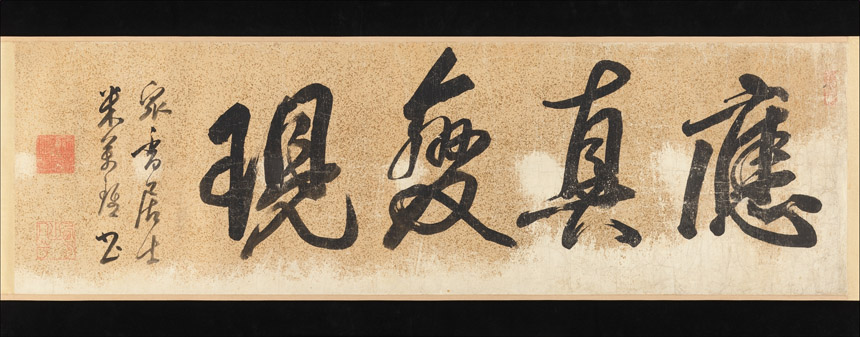 應真變現
衆香居士
米萬鍾書